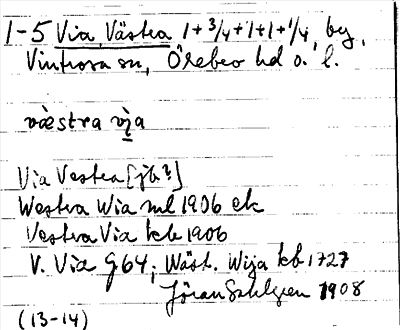 1-5 Via, Västra 1+3/4+1+1+1/4, by,
Vintrosa sn, Örebro hd o. l.
væ̀stra vi̬a
Via Vestra [jb?]
Westra Wia ml 1906 ek
Vestra Via kb 1906
V. Via G64; Wäst. Wija kb 1727
Jöran Sahlgren 1908
(13-14)